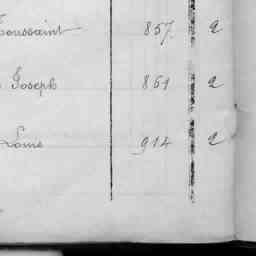 Toussaint 857. 2
Joseph 861 2
Louis 914 2